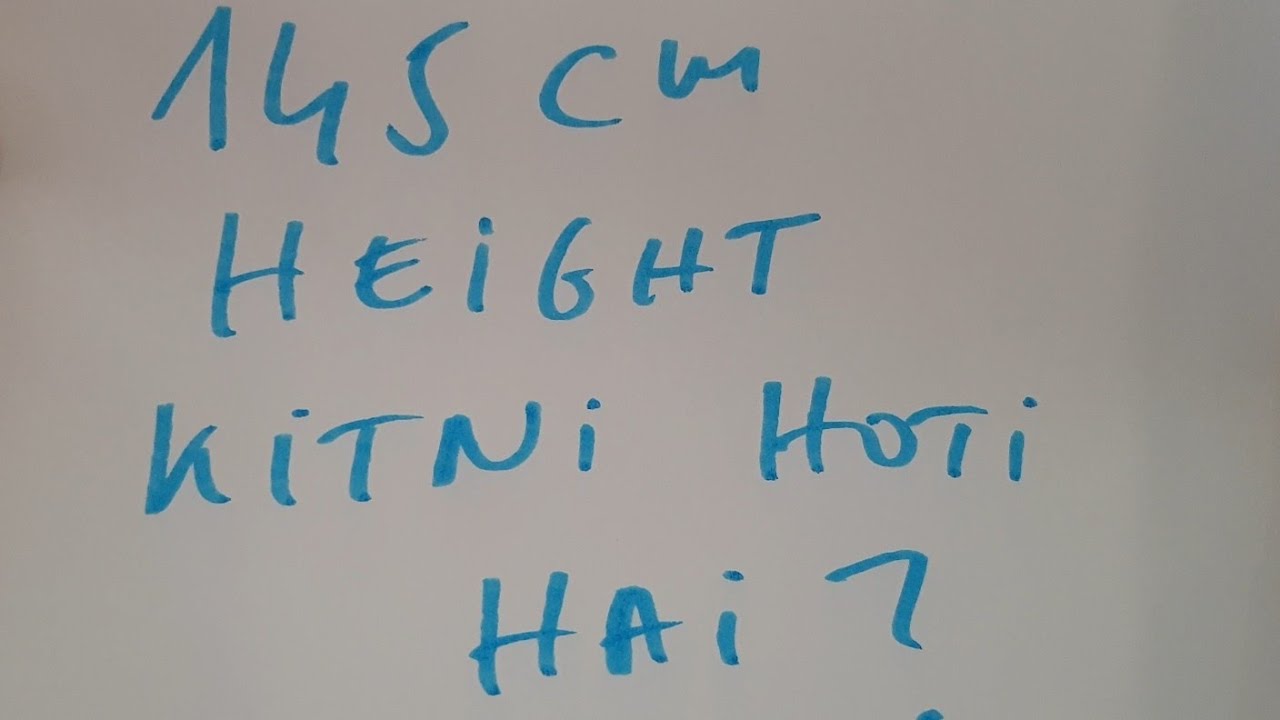 145 cm
HEiGHT
KiTNi HOTi
HAi ?